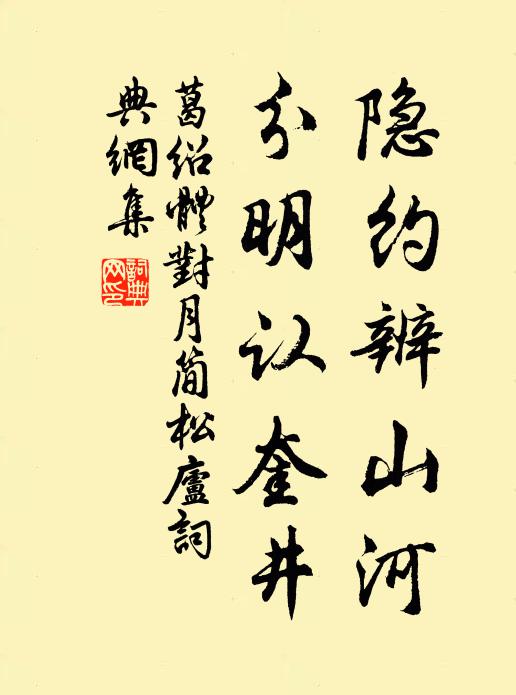 隐约辨山河
分明认奎井
葛绍體對月简松廬詞
典網集
詞典网印